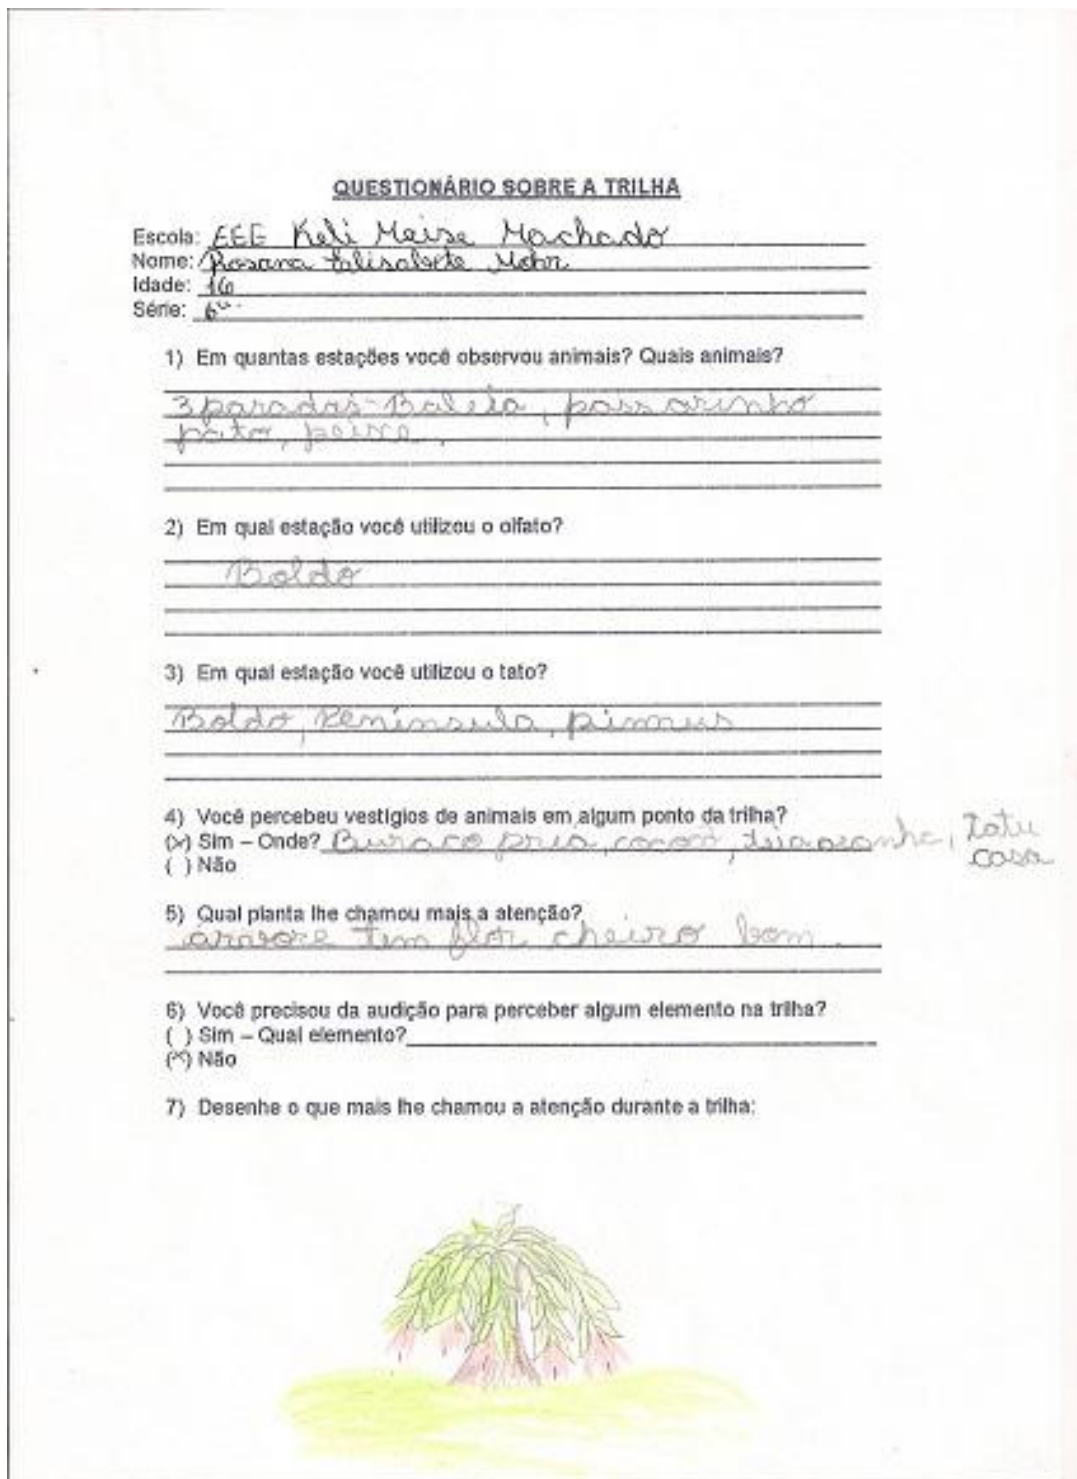 QUESTIONÁRIO SOBRE A TRILHA
Escola: EEE Keli Meise Machado
Nome: Rosana Elisabete Mohr
Idade: 16
Série: 6ª
1) Em quantas estações você observou animais? Quais animais?
3 paradas - passarinho
pato, peixe.
2) Em qual estação você utilizou o olfato?
Boldo
3) Em qual estação você utilizou o tato?
Boldo, Península, pinnus
4) Você percebeu vestígios de animais em algum ponto da trilha?
(x) Sim – Onde? Buraco preá, cocô, teia aranha, Tatu
( ) Não casa
5) Qual planta lhe chamou mais a atenção?
árvore tem flor cheiro bom.
6) Você precisou da audição para perceber algum elemento na trilha?
( ) Sim – Qual elemento?
(x) Não
7) Desenhe o que mais lhe chamou a atenção durante a trilha: